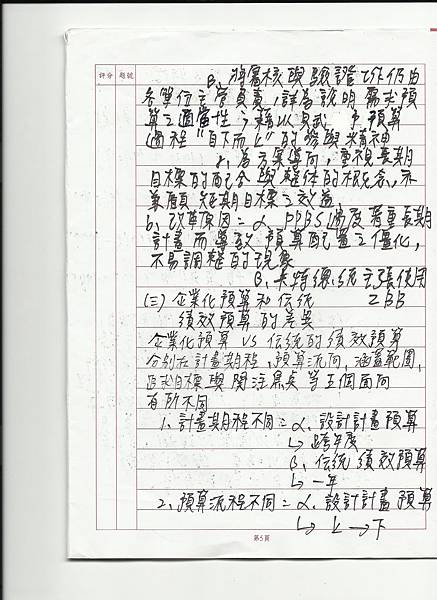 評分 題號
β、將審核與驗證工作仍由
各單位主管負責，詳為說明需求預
算之適當性，藉以貝武 予預算
過程"自下而上"的參與精神
γ、為方案導向，重視長期
目標的配合與整体的概念，亦
兼顧短期目標之效益
b、改革原因=α、PPBS過度著重長期
計畫而導致預算配置之僵化，
不易調整的現象
β、卡特總統主張使用
ZBB
(三)企業化預算和傳統
績效預算的差異
企業化預算 VS 傳統的績效預算
分別在計畫期程，預算流向，涵蓋範圍，
追求目標與關注焦點等五個面向
有所不同
1、計畫期程不同=α、設計計畫預算
↳跨年度
β、傳統績效預算
↳一年
2、預算流程不同=α、設計計畫預算
↳上→下
第5頁